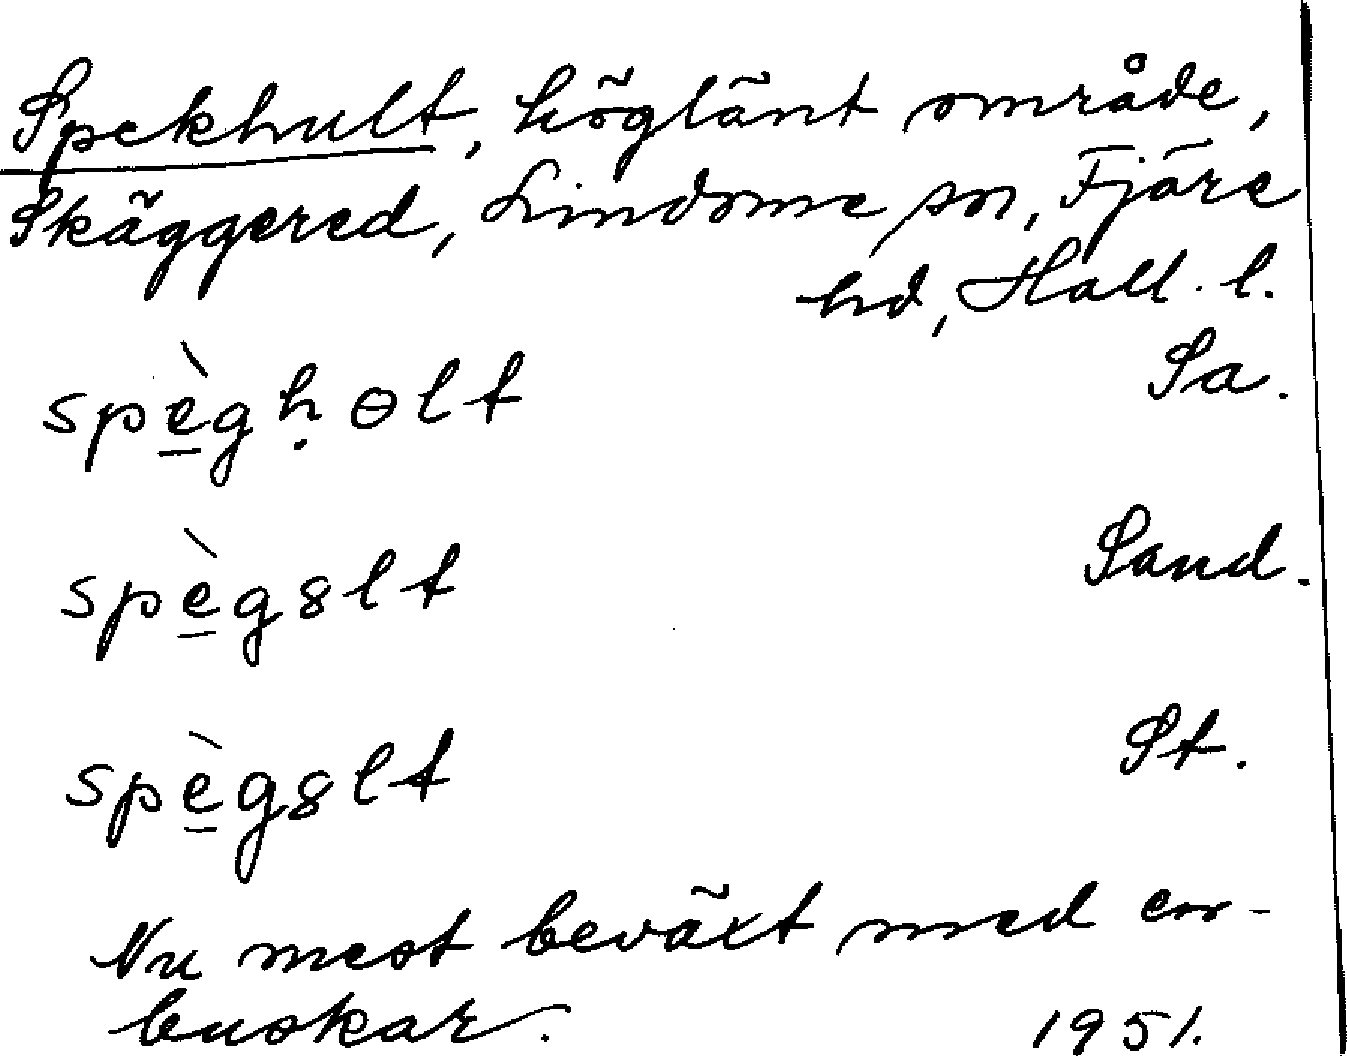 Spekhult, höglänt område,
Skäggered, Lindome sn, Fjäre
hd, Hall. l.
spè̱gḥɵlt Sa.
spè̱g8lt Sand.
spè̱g8lt St.
Nu mest beväxt med en-
buskar. 1951.